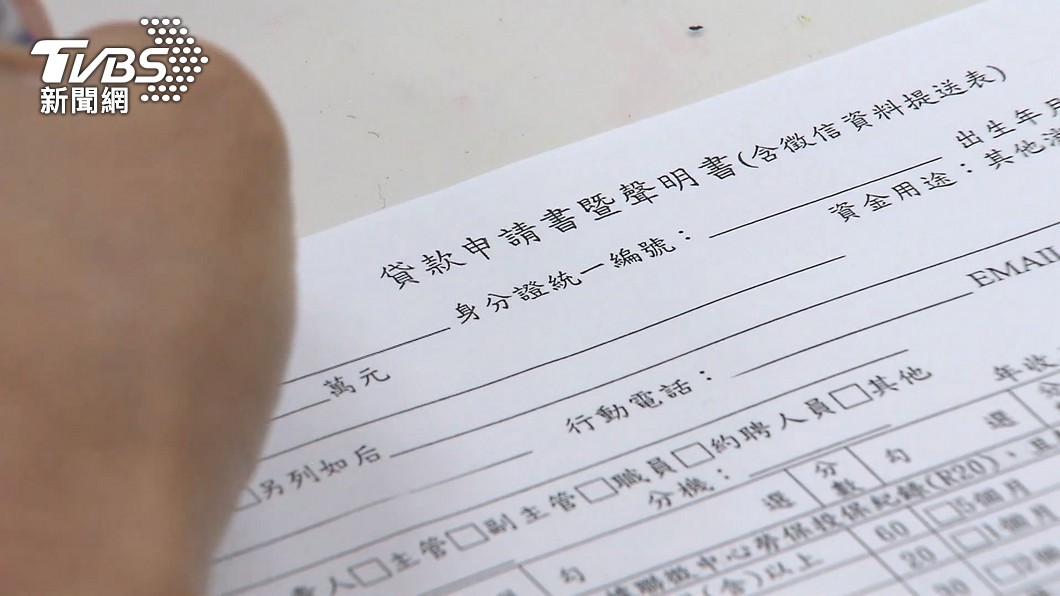 TVBS
新聞網
貸款申請書暨聲明書(含徵信資料提送表)
身分證統一編號： 出生年月
萬元 資金用途：其他
EMAIL
另列如后 行動電話：
主管□副主管□職員□約聘人員□其他 年收
分機：
勾選 分數 勾選
聯徵中心勞保投保紀錄(R20)、且
60 □5個月
(含)以上 20 □1個月